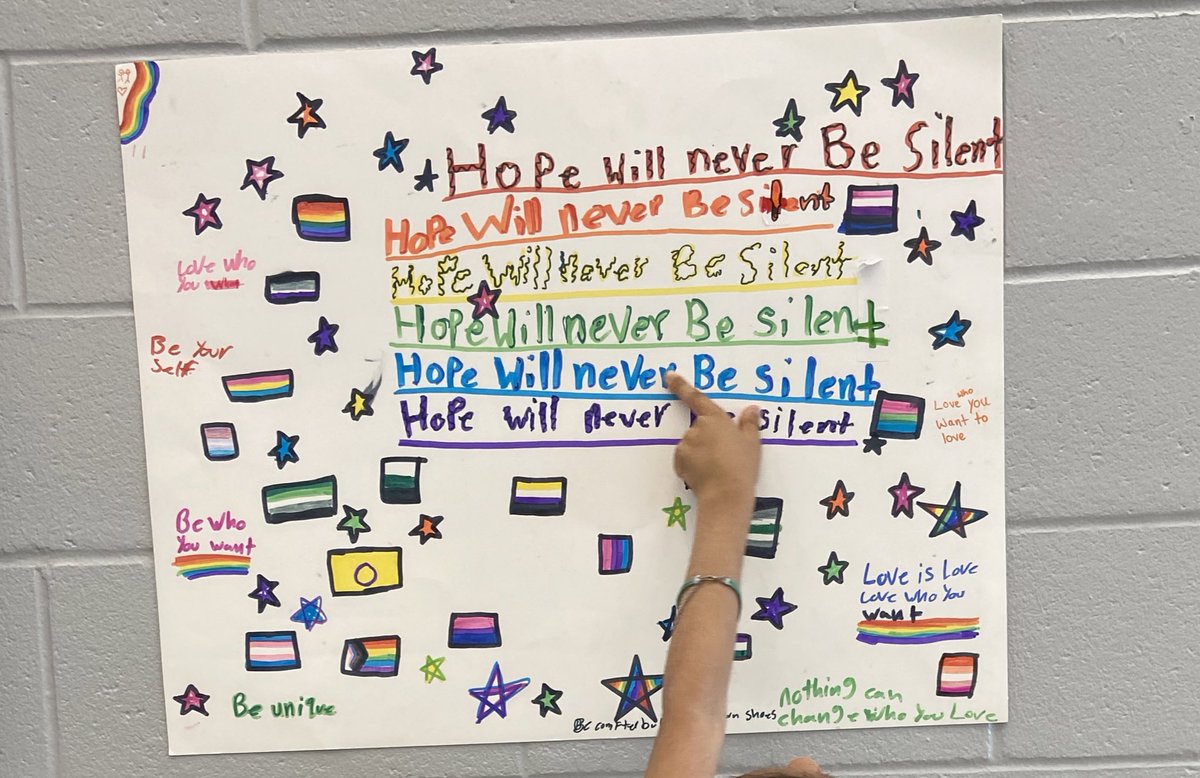 Hope will never Be Silent
Hope Will never Be silent
Hope Will Never Be Silent
Hope Will never Be silent
Hope Will never Be silent
Hope will never silent
Love who
you
Be Your
Self
Love who you
want to
love
Be who
You want
Love is Love
Love who you
want
Be unique
Be shoes
nothing can
change who you Love